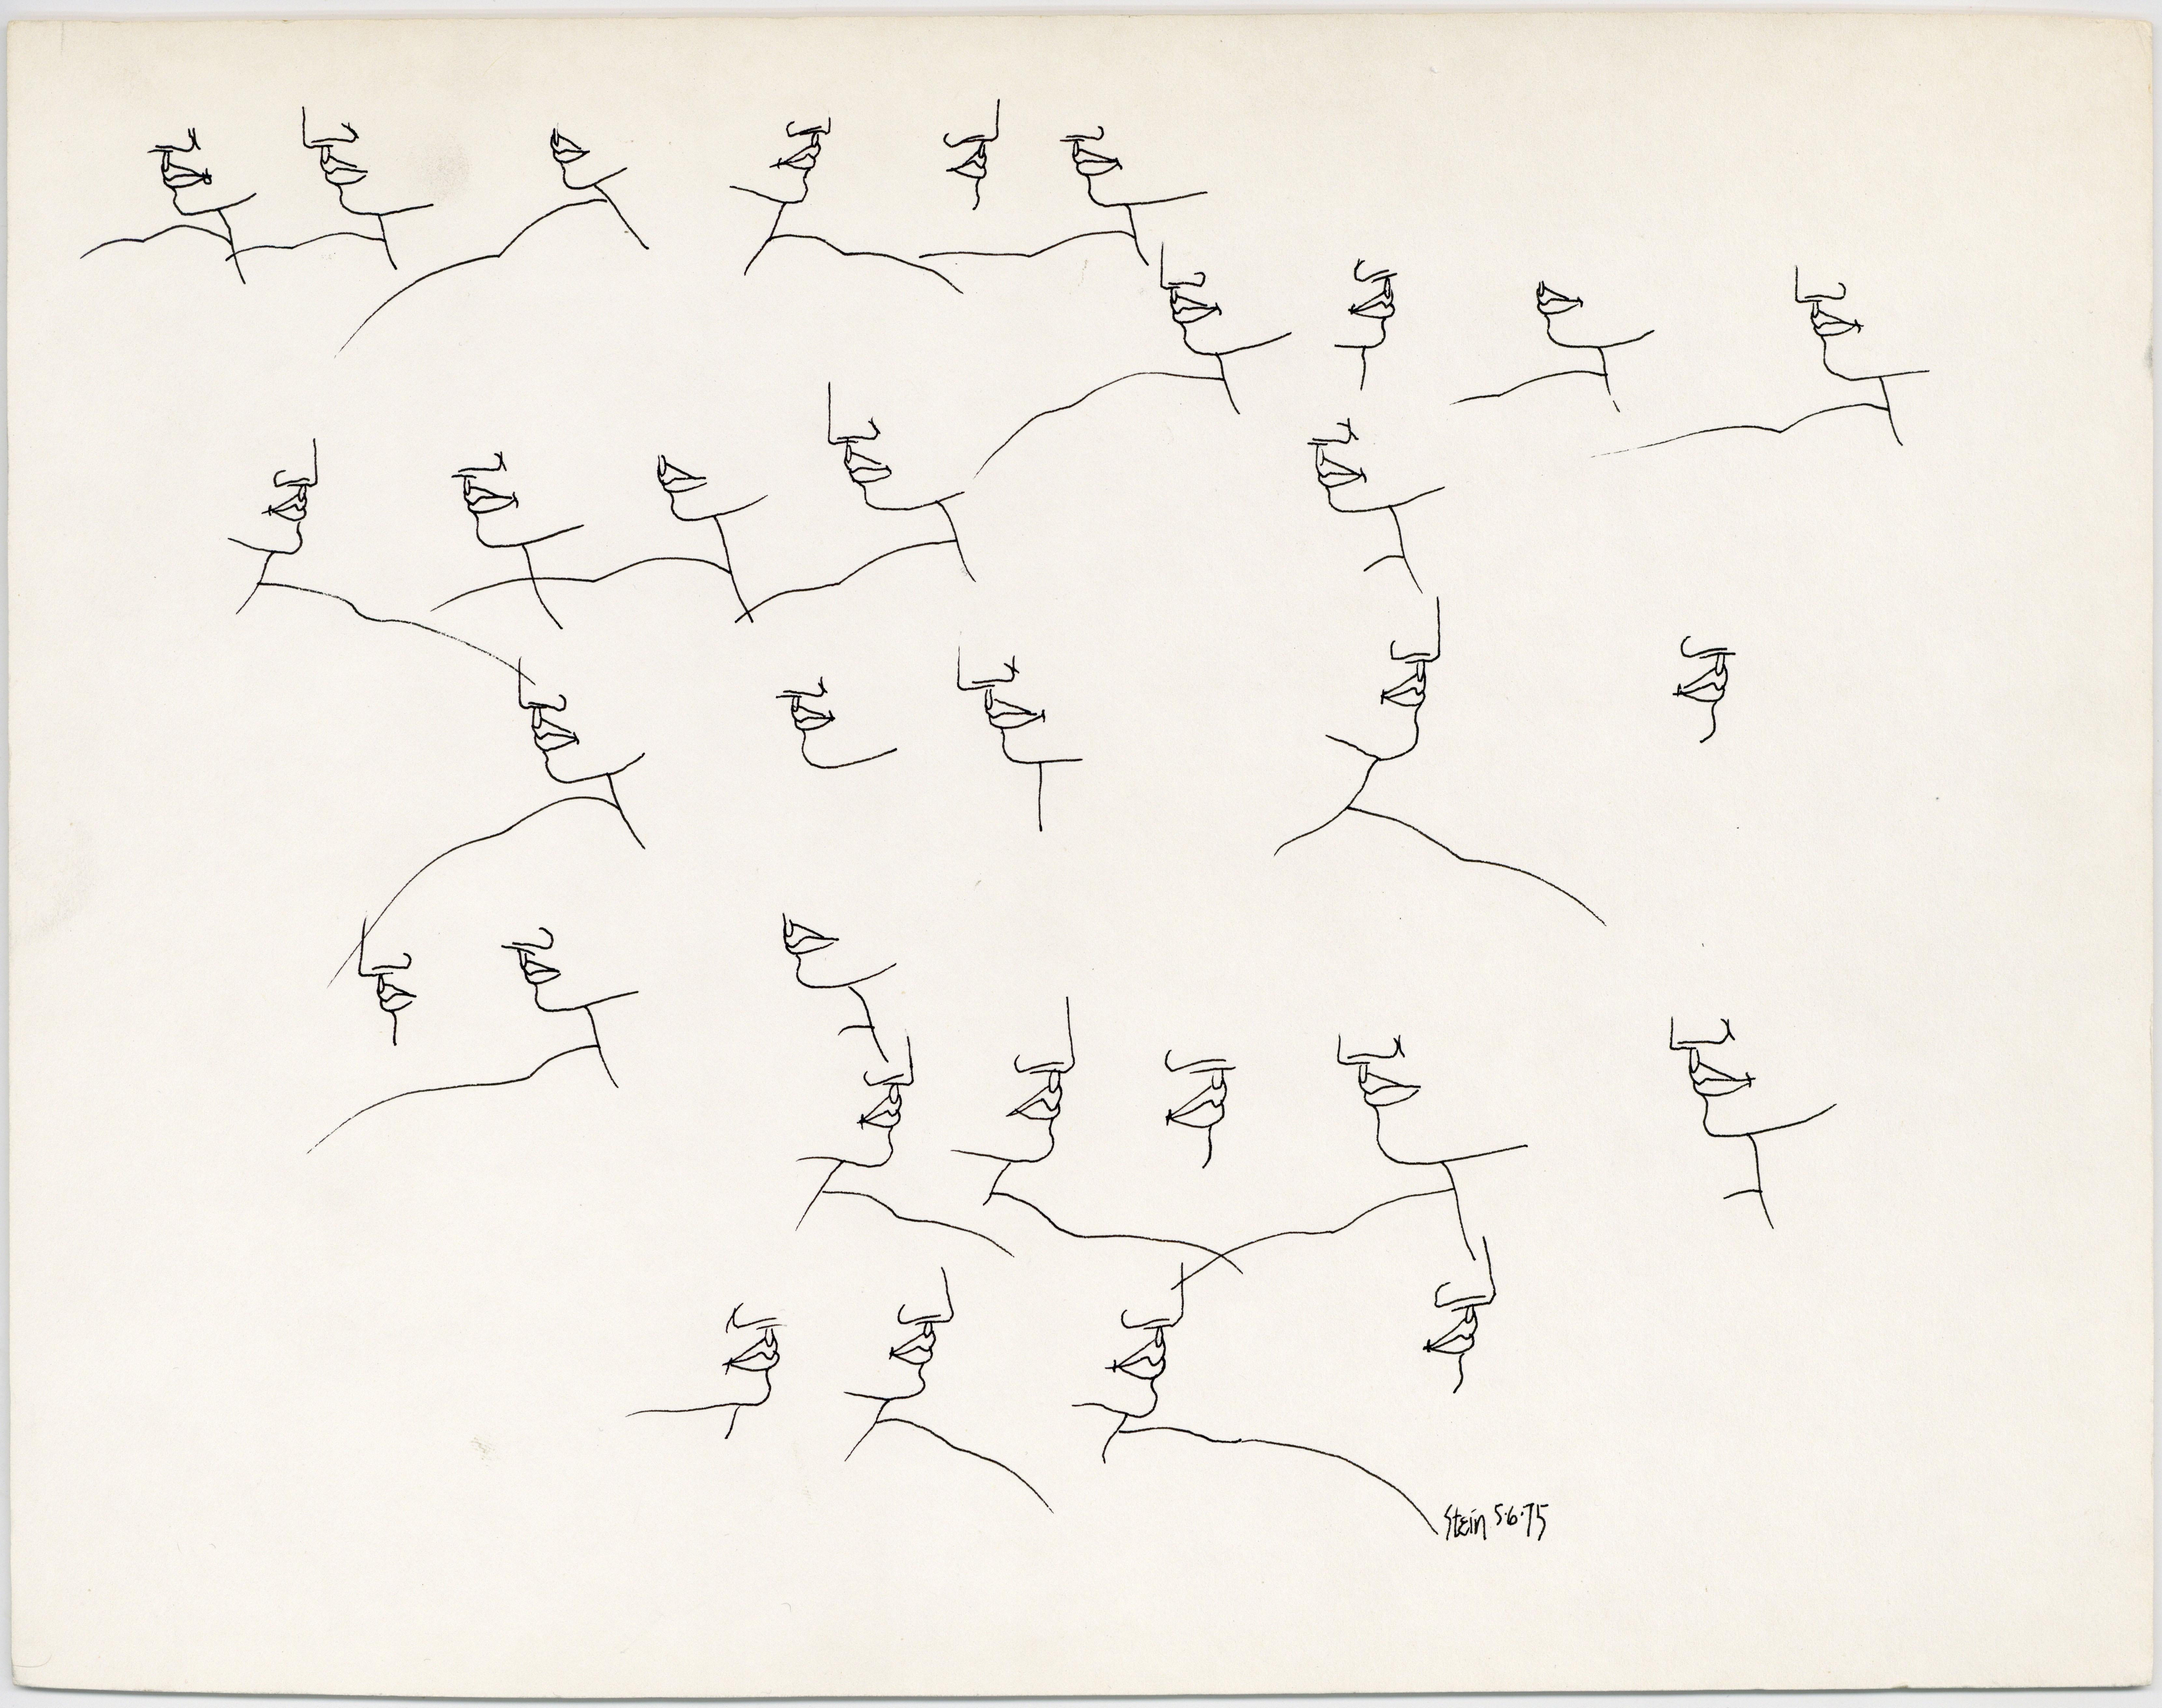 Stein 5·6·75